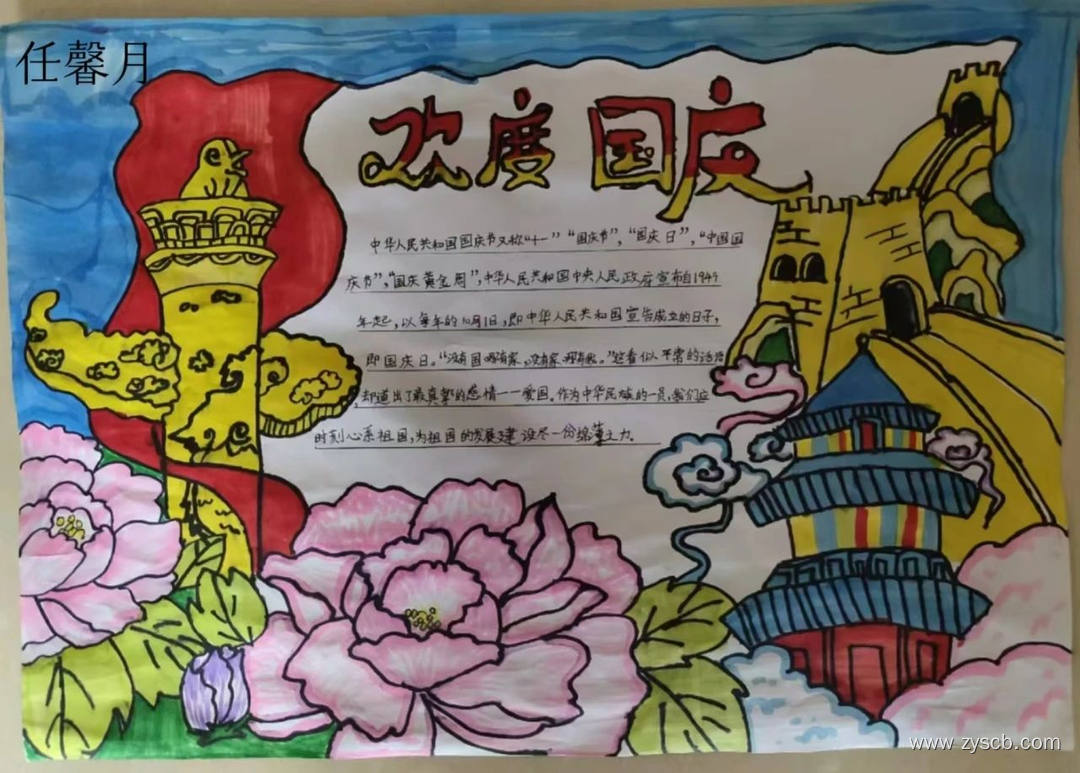 任馨月
欢度国庆
中华人民共和国国庆节又称“十一”“国庆节”,“国庆日”,“中国国
庆节”,“国庆黄金周”,中华人民共和国中央人民政府宣布自1949
年起,以每年的10月1日,即中华人民共和国宣告成立的日子,
即国庆日。“没有国哪有家,没有家哪有我。”这看似平常的话语
却道出了最真挚的感情一一爱国。作为中华民族的一员,我们应
时刻心系祖国,为祖国的发展建设尽一份绵薄之力。
www.zyscb.com